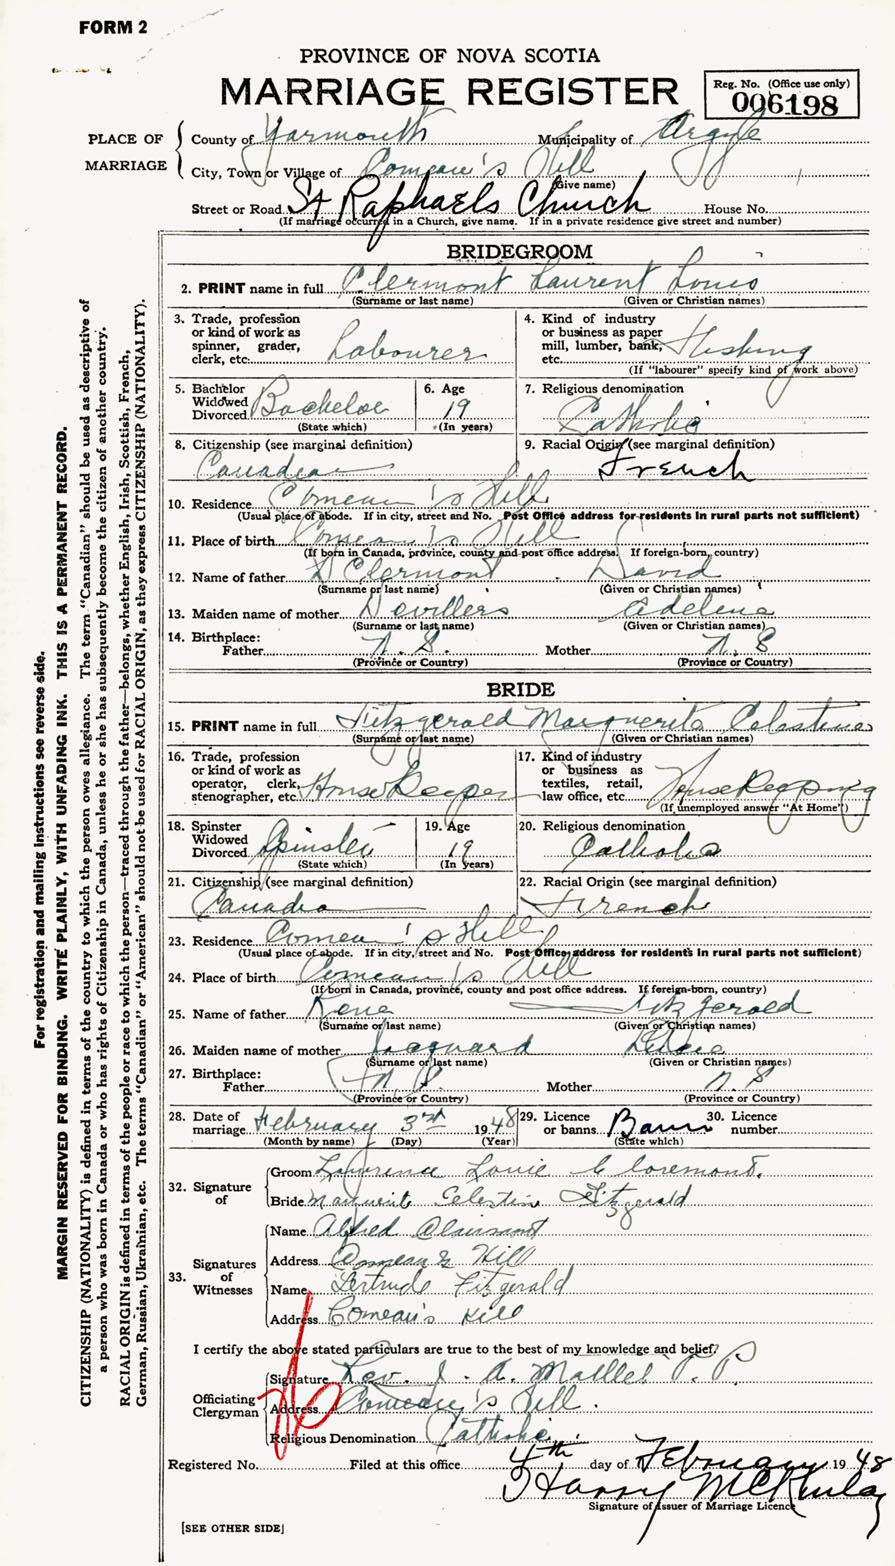 FORM 2
PROVINCE OF NOVA SCOTIA
MARRIAGE REGISTER
Reg. No. (Office use only)
006198
PLACE OF MARRIAGE
County of Yarmouth Municipality of Argyle
City, Town or Village of Comeau's Hill
(Give name)
Street or Road St Raphaels Church House No.
(If marriage occurred in a Church, give name. If in a private residence give street and number)
BRIDEGROOM
2. PRINT name in full Clermont Laurent Louis
(Surname or last name) (Given or Christian names)
3. Trade, profession or kind of work as spinner, grader, clerk, etc. Labourer
4. Kind of industry or business as paper mill, lumber, bank, etc. Fishing
(If "labourer" specify kind of work above)
5. Bachelor Widowed Divorced Bachelor
(State which)
6. Age 19
(In years)
7. Religious denomination
Catholic
8. Citizenship (see marginal definition)
Canadian
9. Racial Origin (see marginal definition)
French
10. Residence Comeau's Hill
(Usual place of abode. If in city, street and No. Post Office address for residents in rural parts not sufficient)
11. Place of birth Comeau's Hill
(If born in Canada, province, county and post office address. If foreign-born, country)
12. Name of father Clermont David
(Surname or last name) (Given or Christian names)
13. Maiden name of mother Devillers Adelene
(Surname or last name) (Given or Christian names)
14. Birthplace:
Father N. S. Mother N. S
(Province or Country) (Province or Country)
BRIDE
15. PRINT name in full Fitzgerald Marguerite Celestine
(Surname or last name) (Given or Christian names)
16. Trade, profession or kind of work as operator, clerk, stenographer, etc. House Keeper
17. Kind of industry or business as textiles, retail, law office, etc House Keeping
(If unemployed answer "At Home")
18. Spinster Widowed Divorced Spinster
(State which)
19. Age 19
(In years)
20. Religious denomination
Catholic
21. Citizenship (see marginal definition)
Canadian
22. Racial Origin (see marginal definition)
French
23. Residence Comeau's Hill
(Usual place of abode. If in city, street and No. Post Office address for residents in rural parts not sufficient)
24. Place of birth Comeau's Hill
(If born in Canada, province, county and post office address. If foreign-born, country)
25. Name of father Rene Fitzgerald
(Surname or last name) (Given or Christian names)
26. Maiden name of mother Jacquard
(Surname or last name) (Given or Christian names)
27. Birthplace:
Father N. S. Mother N. S
(Province or Country) (Province or Country)
28. Date of marriage February 3rd 1948
(Month by name) (Day) (Year)
29. Licence or banns Bann
(State which)
30. Licence number
32. Signature of
Groom Lawrence Louie Cloremont.
Bride Marguerite Celestin Fitzgerald
33. Signatures of Witnesses
Name Alfred Clairmont
Address Comeau's Hill
Name Gertrude Fitzgerald
Address Comeau's Hill
I certify the above stated particulars are true to the best of my knowledge and belief.
Officiating Clergyman
Signature Rev. J. A. Maillet P. P.
Address Comeau's Hill.
Religious Denomination Catholic
Registered No. Filed at this office 4th day of February 1948
Harry McKinlay
Signature of Issuer of Marriage Licence
[SEE OTHER SIDE]
For registration and mailing instructions see reverse side.
MARGIN RESERVED FOR BINDING. WRITE PLAINLY, WITH UNFADING INK. THIS IS A PERMANENT RECORD.
CITIZENSHIP (NATIONALITY) is defined in terms of the country to which the person owes allegiance. The term "Canadian" should be used as descriptive of
a person who was born in Canada or who has rights of Citizenship in Canada, unless he or she has subsequently become the citizen of another country.
RACIAL ORIGIN is defined in terms of the people or race to which the person—traced through the father—belongs, whether English, Irish, Scottish, French,
German, Russian, Ukrainian, etc. The terms "Canadian" or "American" should not be used for RACIAL ORIGIN, as they express CITIZENSHIP (NATIONALITY).